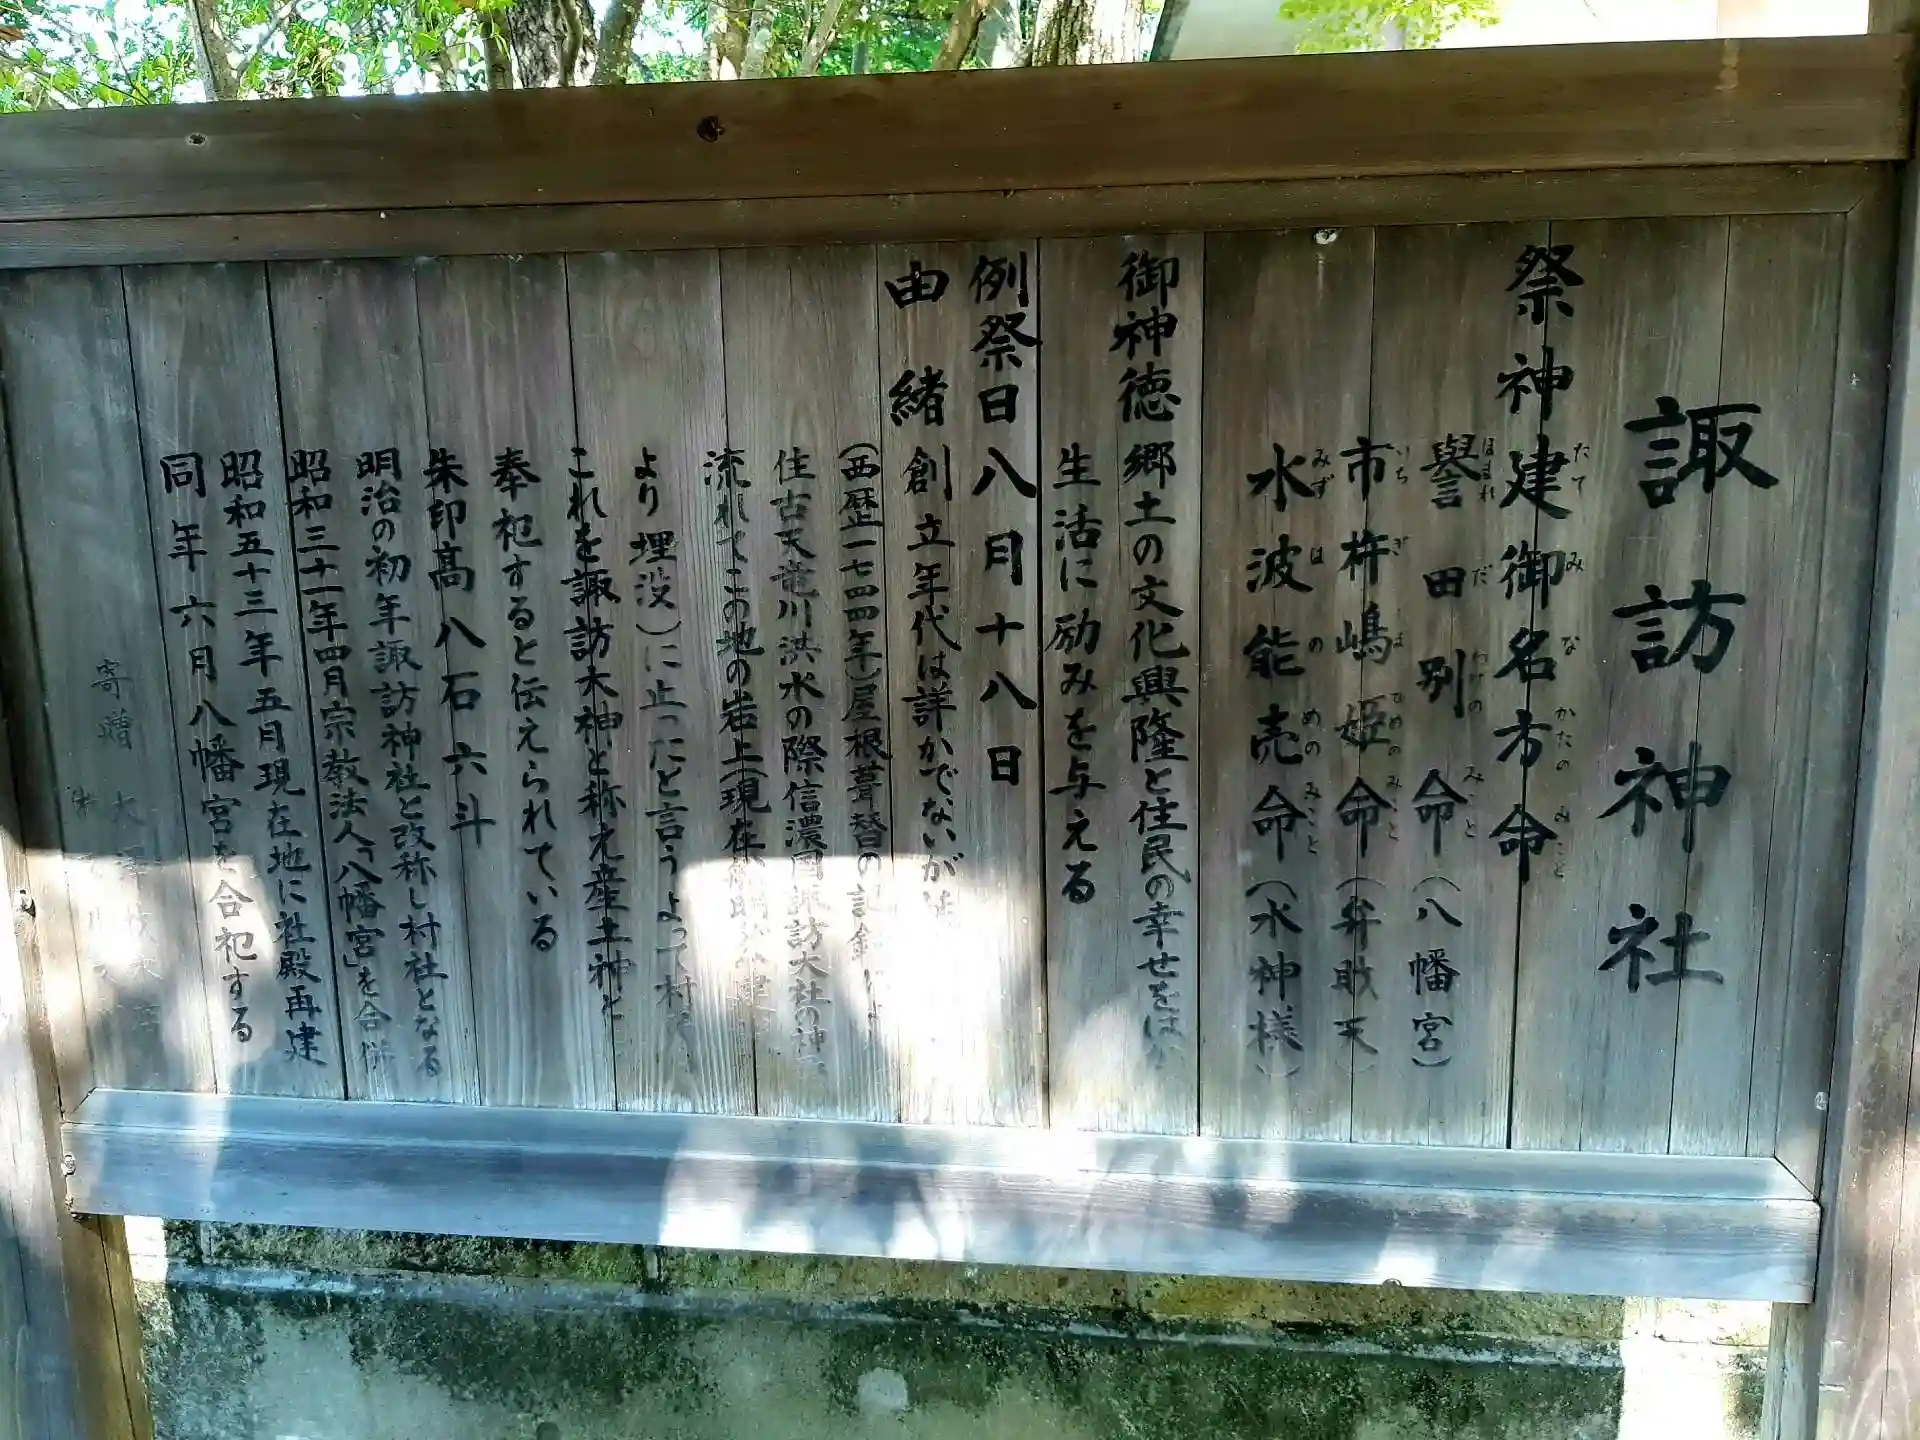 諏訪神社
祭神 建御名方命
たて み な かたの みこと
譽田別命(八幡宮)
ほまれ だ わけの みこと
市杵嶋姫命(弁財天)
いち ぎ しま ひめの みこと
水波能売命(水神様)
みず は の めの みこと
御神徳 郷土の文化興隆と住民の幸せをは
生活に励みを与える
例祭日 八月十八日
由緒 創立年代は詳かでないが
(西歴一七四四年)屋根葺替の記録によ
往古天竜川洪水の際信濃国諏訪大社の神
流れてこの地の岩上(現在
より埋没)に止ったと言うよって村
これを諏訪大神と称え産土神と
奉祀すると伝えられている
朱印高 八石六斗
明治の初年諏訪神社と改称し村社となる
昭和三十一年四月宗教法人「八幡宮」を合併
昭和五十三年五月現在地に社殿再建
同年六月八幡宮を合祀する
寄贈 大